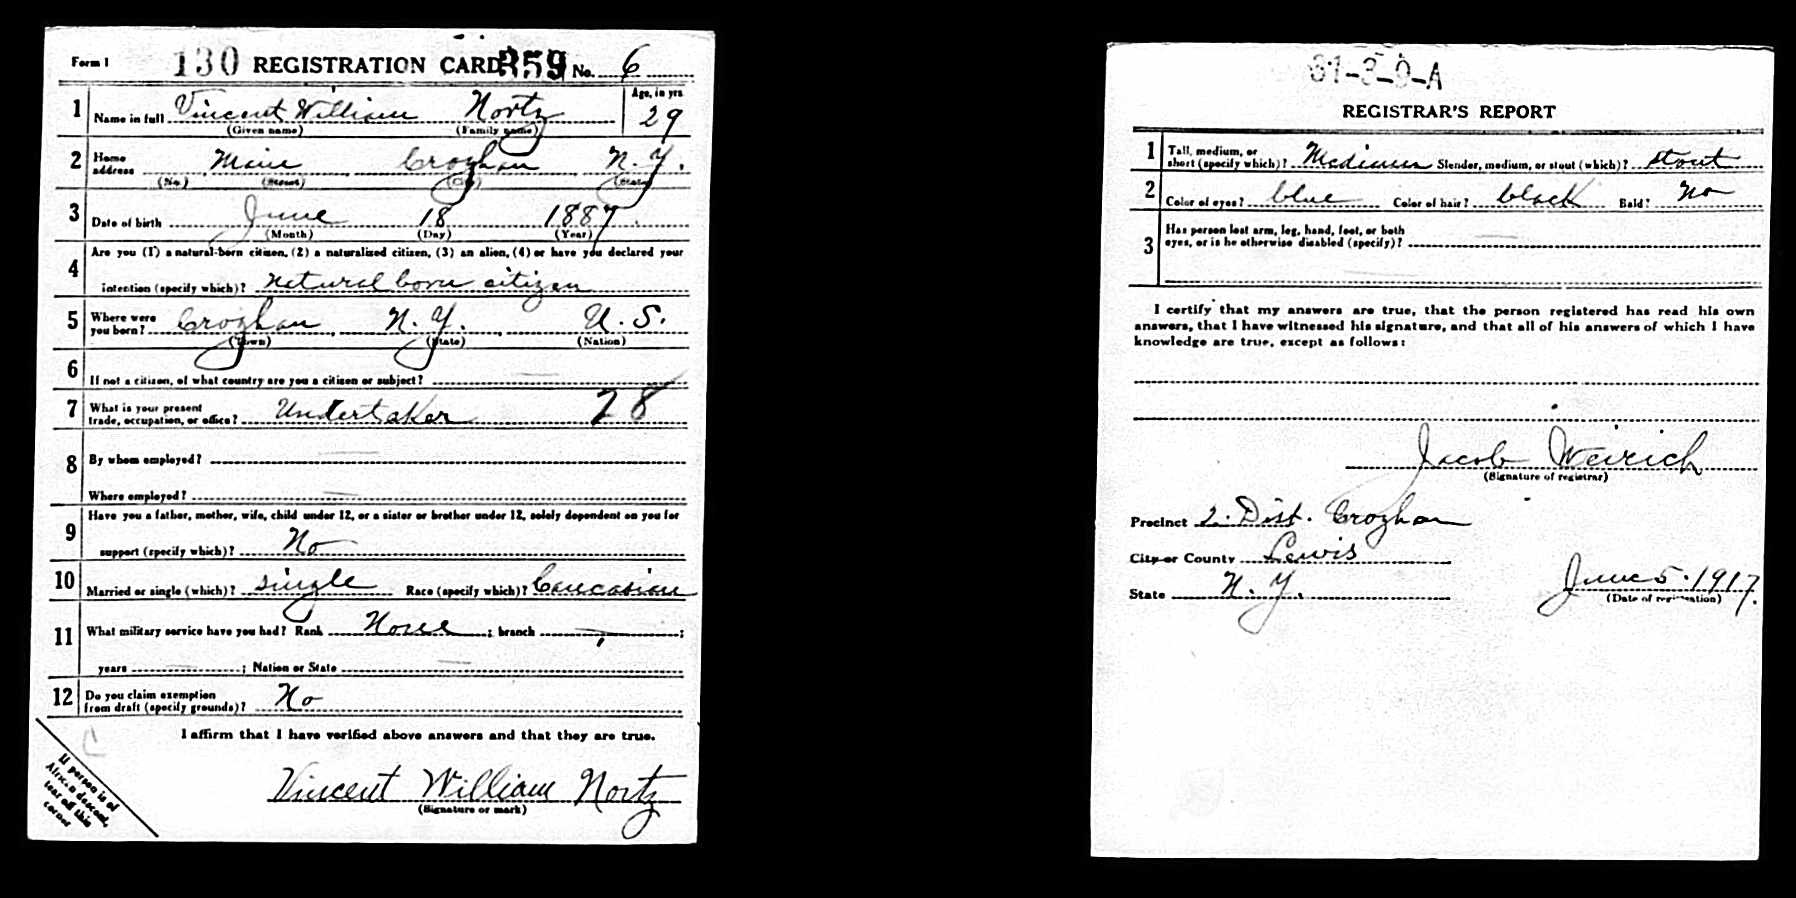 Form 1 130 REGISTRATION CARD 359 No. 6
1 Name in full Vincent William Nortz Age, in yrs 29
(Given name) (Family name)
2 Home address Main Croghan N.Y.
(No.) (Street) (City) (State)
3 Date of birth June 18 1887.
(Month) (Day) (Year)
4 Are you (1) a natural-born citizen, (2) a naturalized citizen, (3) an alien, (4) or have you declared your
intention (specify which)? natural born citizen
5 Where were you born? Croghan, N.Y., U.S.
(Town) (State) (Nation)
6 If not a citizen, of what country are you a citizen or subject?
7 What is your present
trade, occupation, or office? Undertaker 28
8 By whom employed?
Where employed?
9 Have you a father, mother, wife, child under 12, or a sister or brother under 12, solely dependent on you for
support (specify which)? No
10 Married or single (which)? single Race (specify which)? Caucasian
11 What military service have you had? Rank None ; branch ;
years ; Nation or State
12 Do you claim exemption
from draft (specify grounds)? No
I affirm that I have verified above answers and that they are true.
Vincent William Nortz
(Signature or mark)
If person is of
African descent,
tear off this
corner
REGISTRAR'S REPORT
1 Tall, medium, or
short (specify which)? Medium Slender, medium, or stout (which)? stout
2 Color of eyes? blue Color of hair? black Bald? No
3 Has person lost arm, leg, hand, foot, or both
eyes, or is he otherwise disabled (specify)?
I certify that my answers are true, that the person registered has read his own
answers, that I have witnessed his signature, and that all of his answers of which I have
knowledge are true, except as follows:
Jacob Weirich
(Signature of registrar)
Precinct 2. Dist. Croghan
City or County Lewis
State N.Y. June 5. 1917.
(Date of registration)